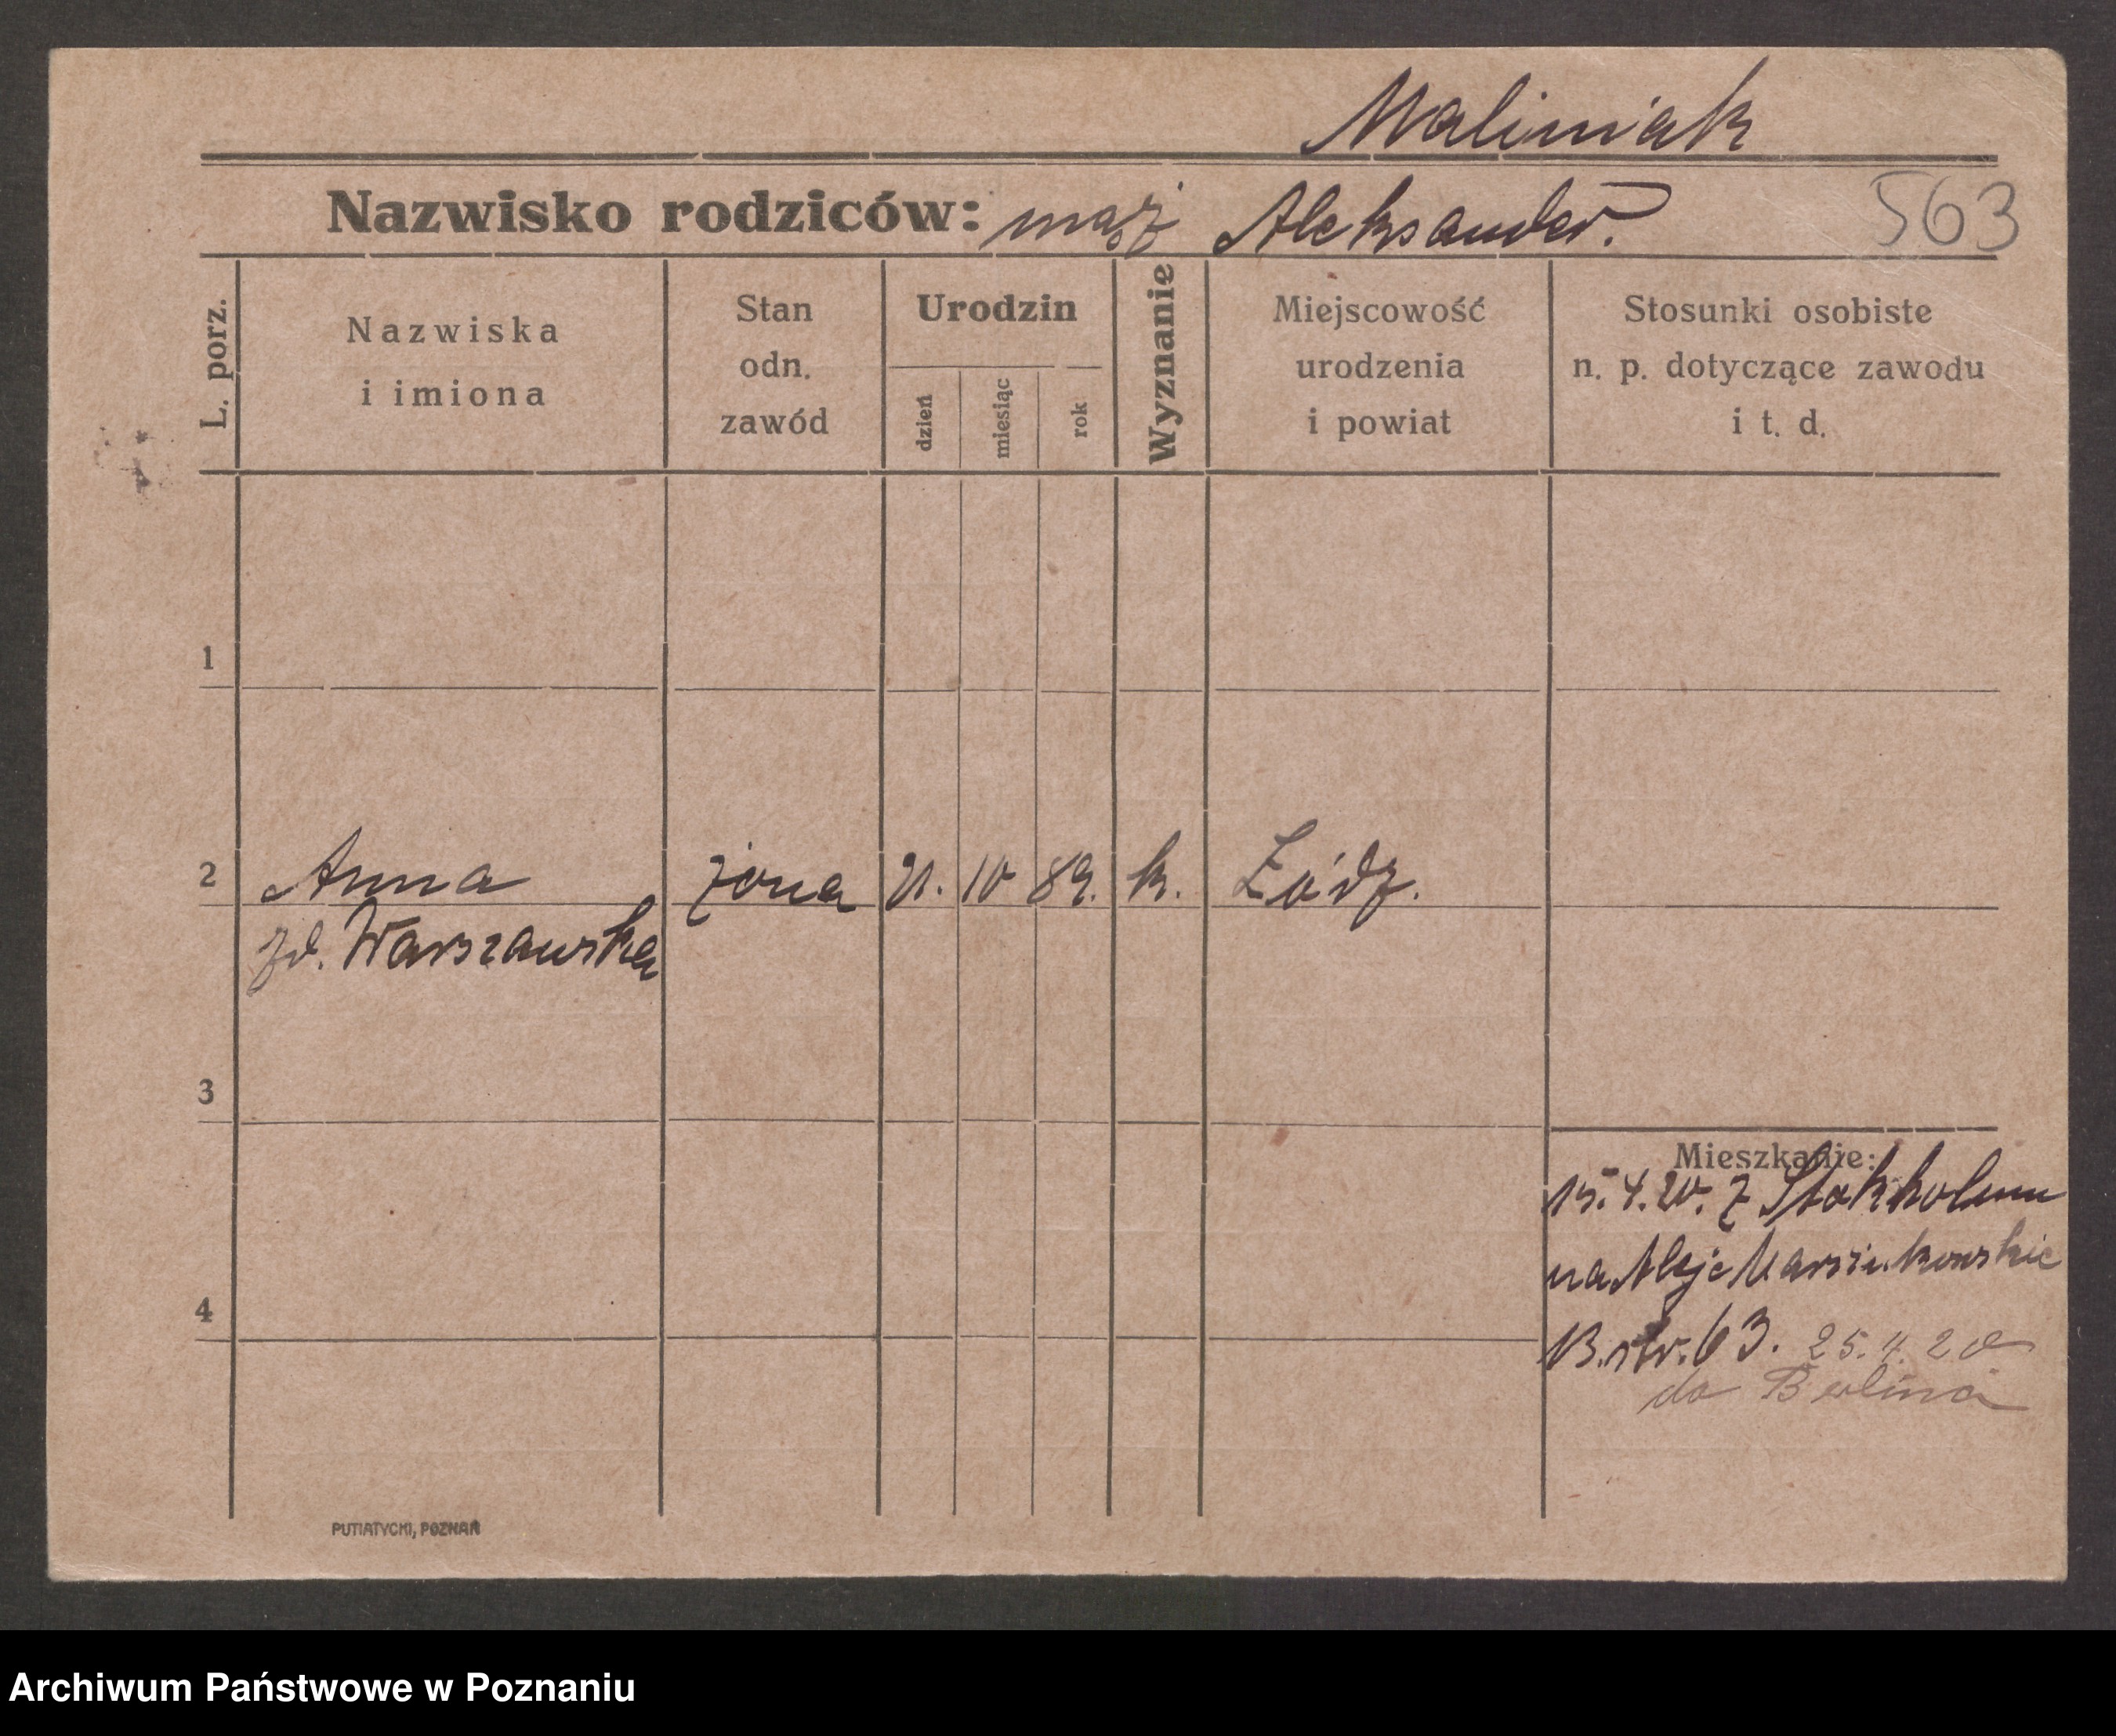 Maliniak
Nazwisko rodziców: mąż Aleksander.
563
L. porz.
Nazwiska
i imiona
Stan
odn.
zawód
Urodzin
dzień
miesiąc
rok
Wyznanie
Miejscowość
urodzenia
i powiat
Stosunki osobiste
n. p. dotyczące zawodu
i t. d.
1
2 Anna żona 21. 10 89. k. Łódź.
zd. Warszawska
3
Mieszkanie:
15.4.20. z Stokholmu
na Aleje Marcinkowskie
13. str. 63. 25.4.20
do Berlina
4
PUTIATYCKI, POZNAŃ
Archiwum Państwowe w Poznaniu